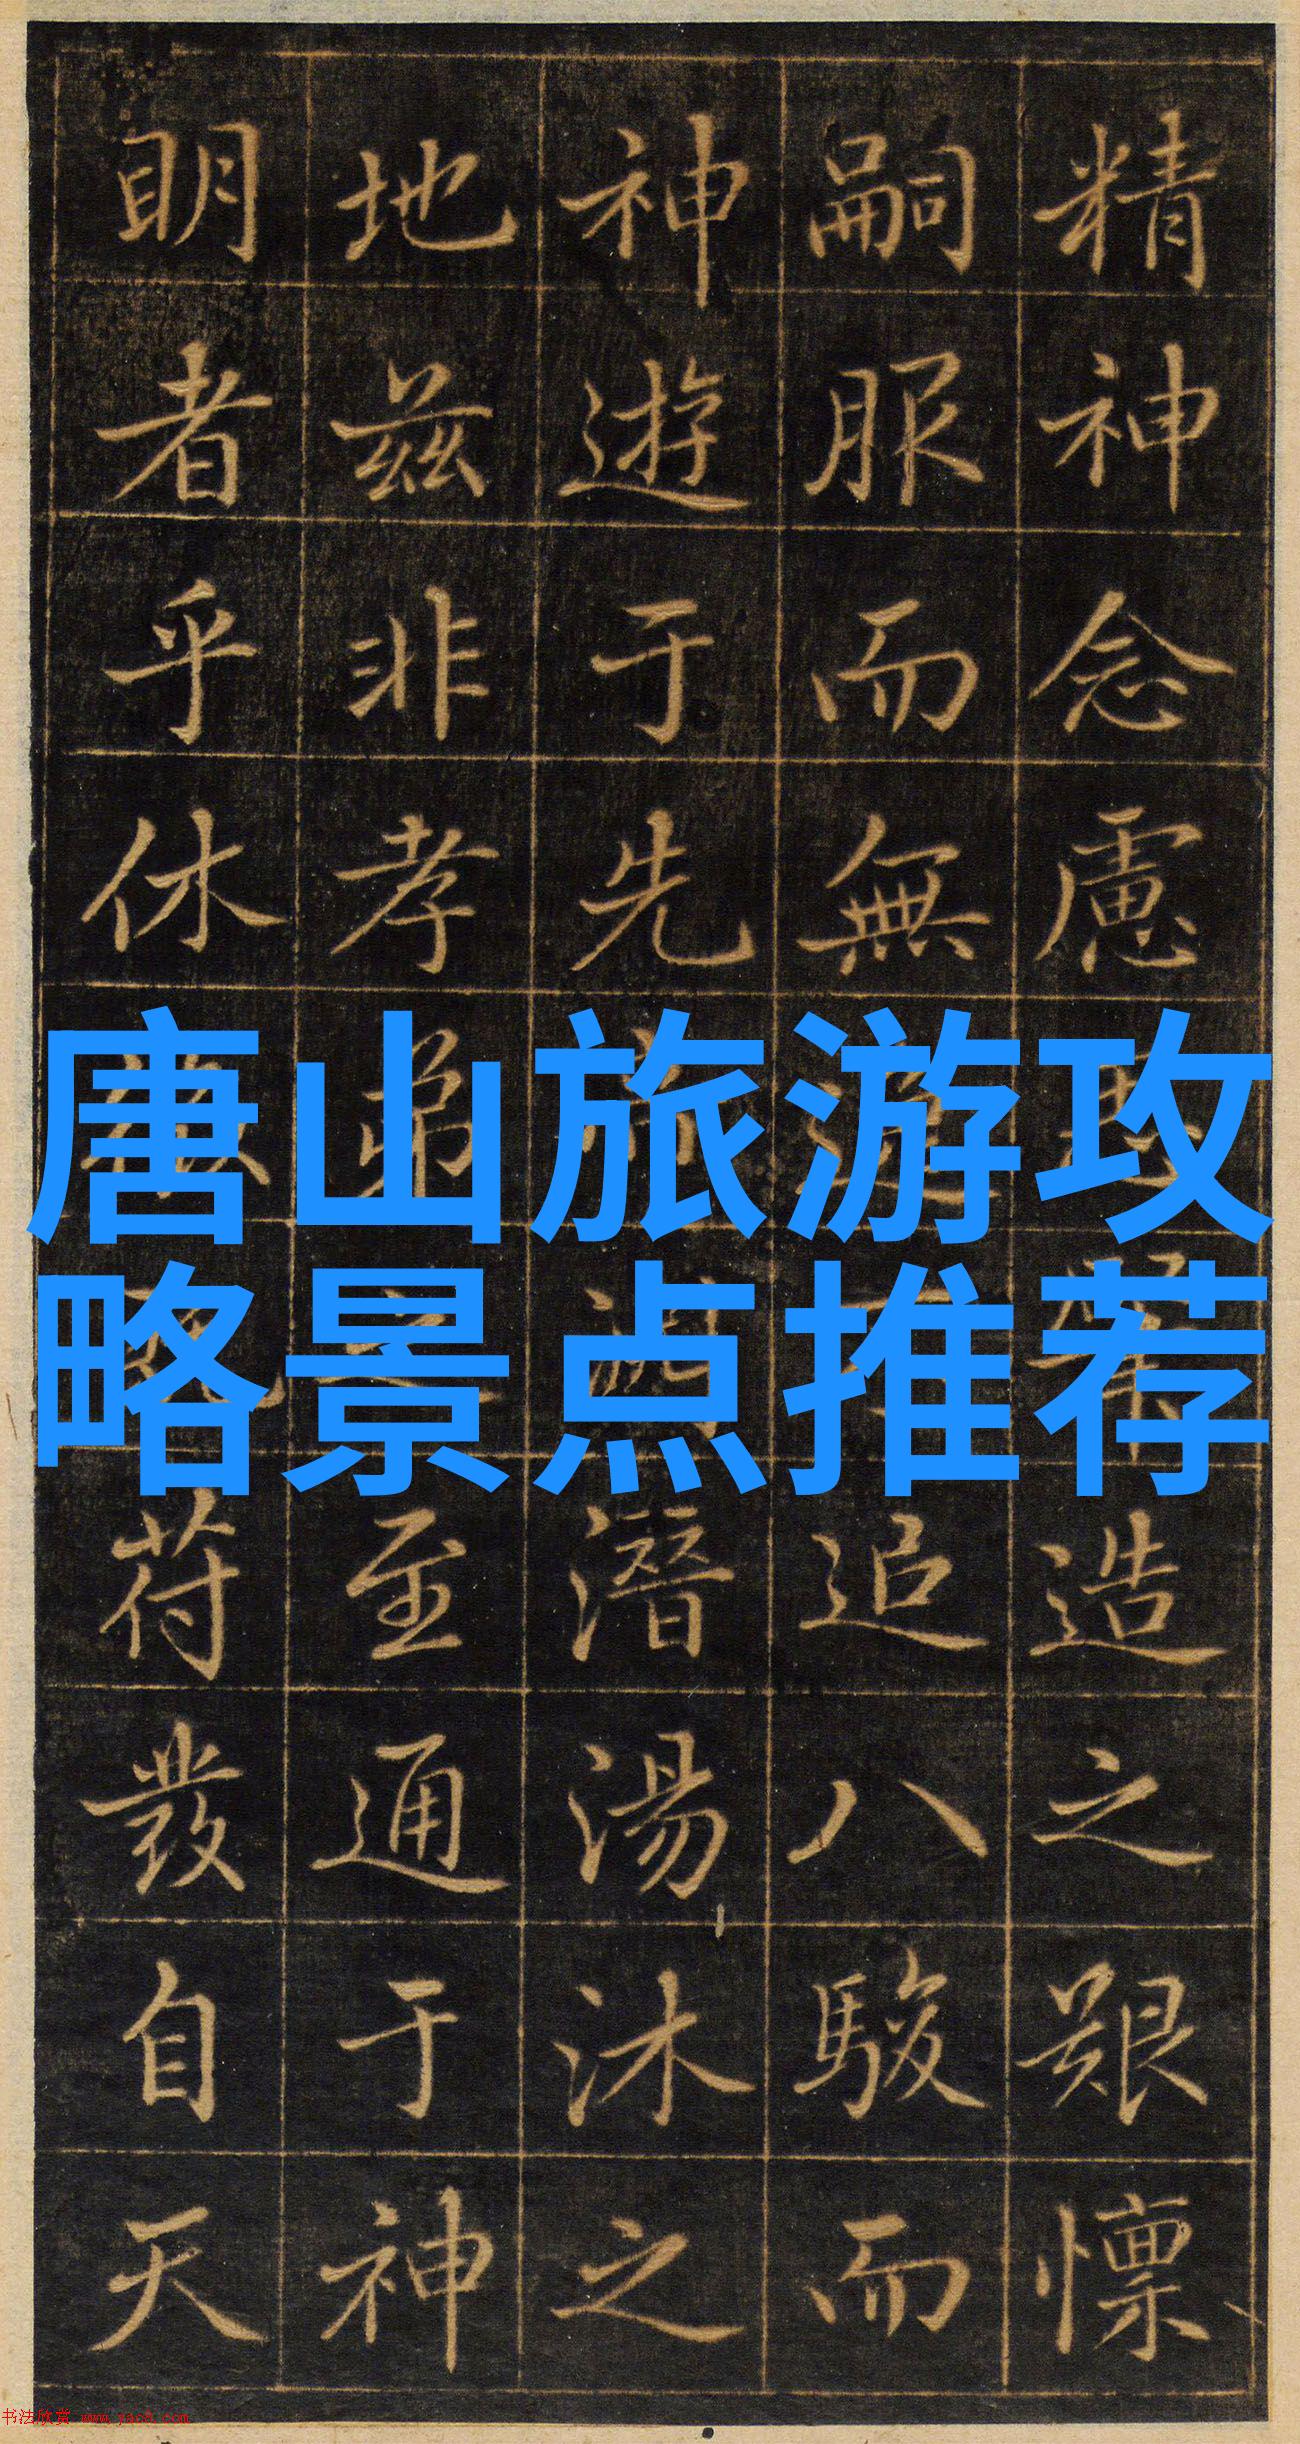 唐山旅游攻
略景点推荐
精神念慮造之艱懍
嗣服而無追八駿而
神遊于先潛湯沐之
地茲非孝弟之至通于神
明者乎休苻發自天
书法欣赏 www.yac8.com